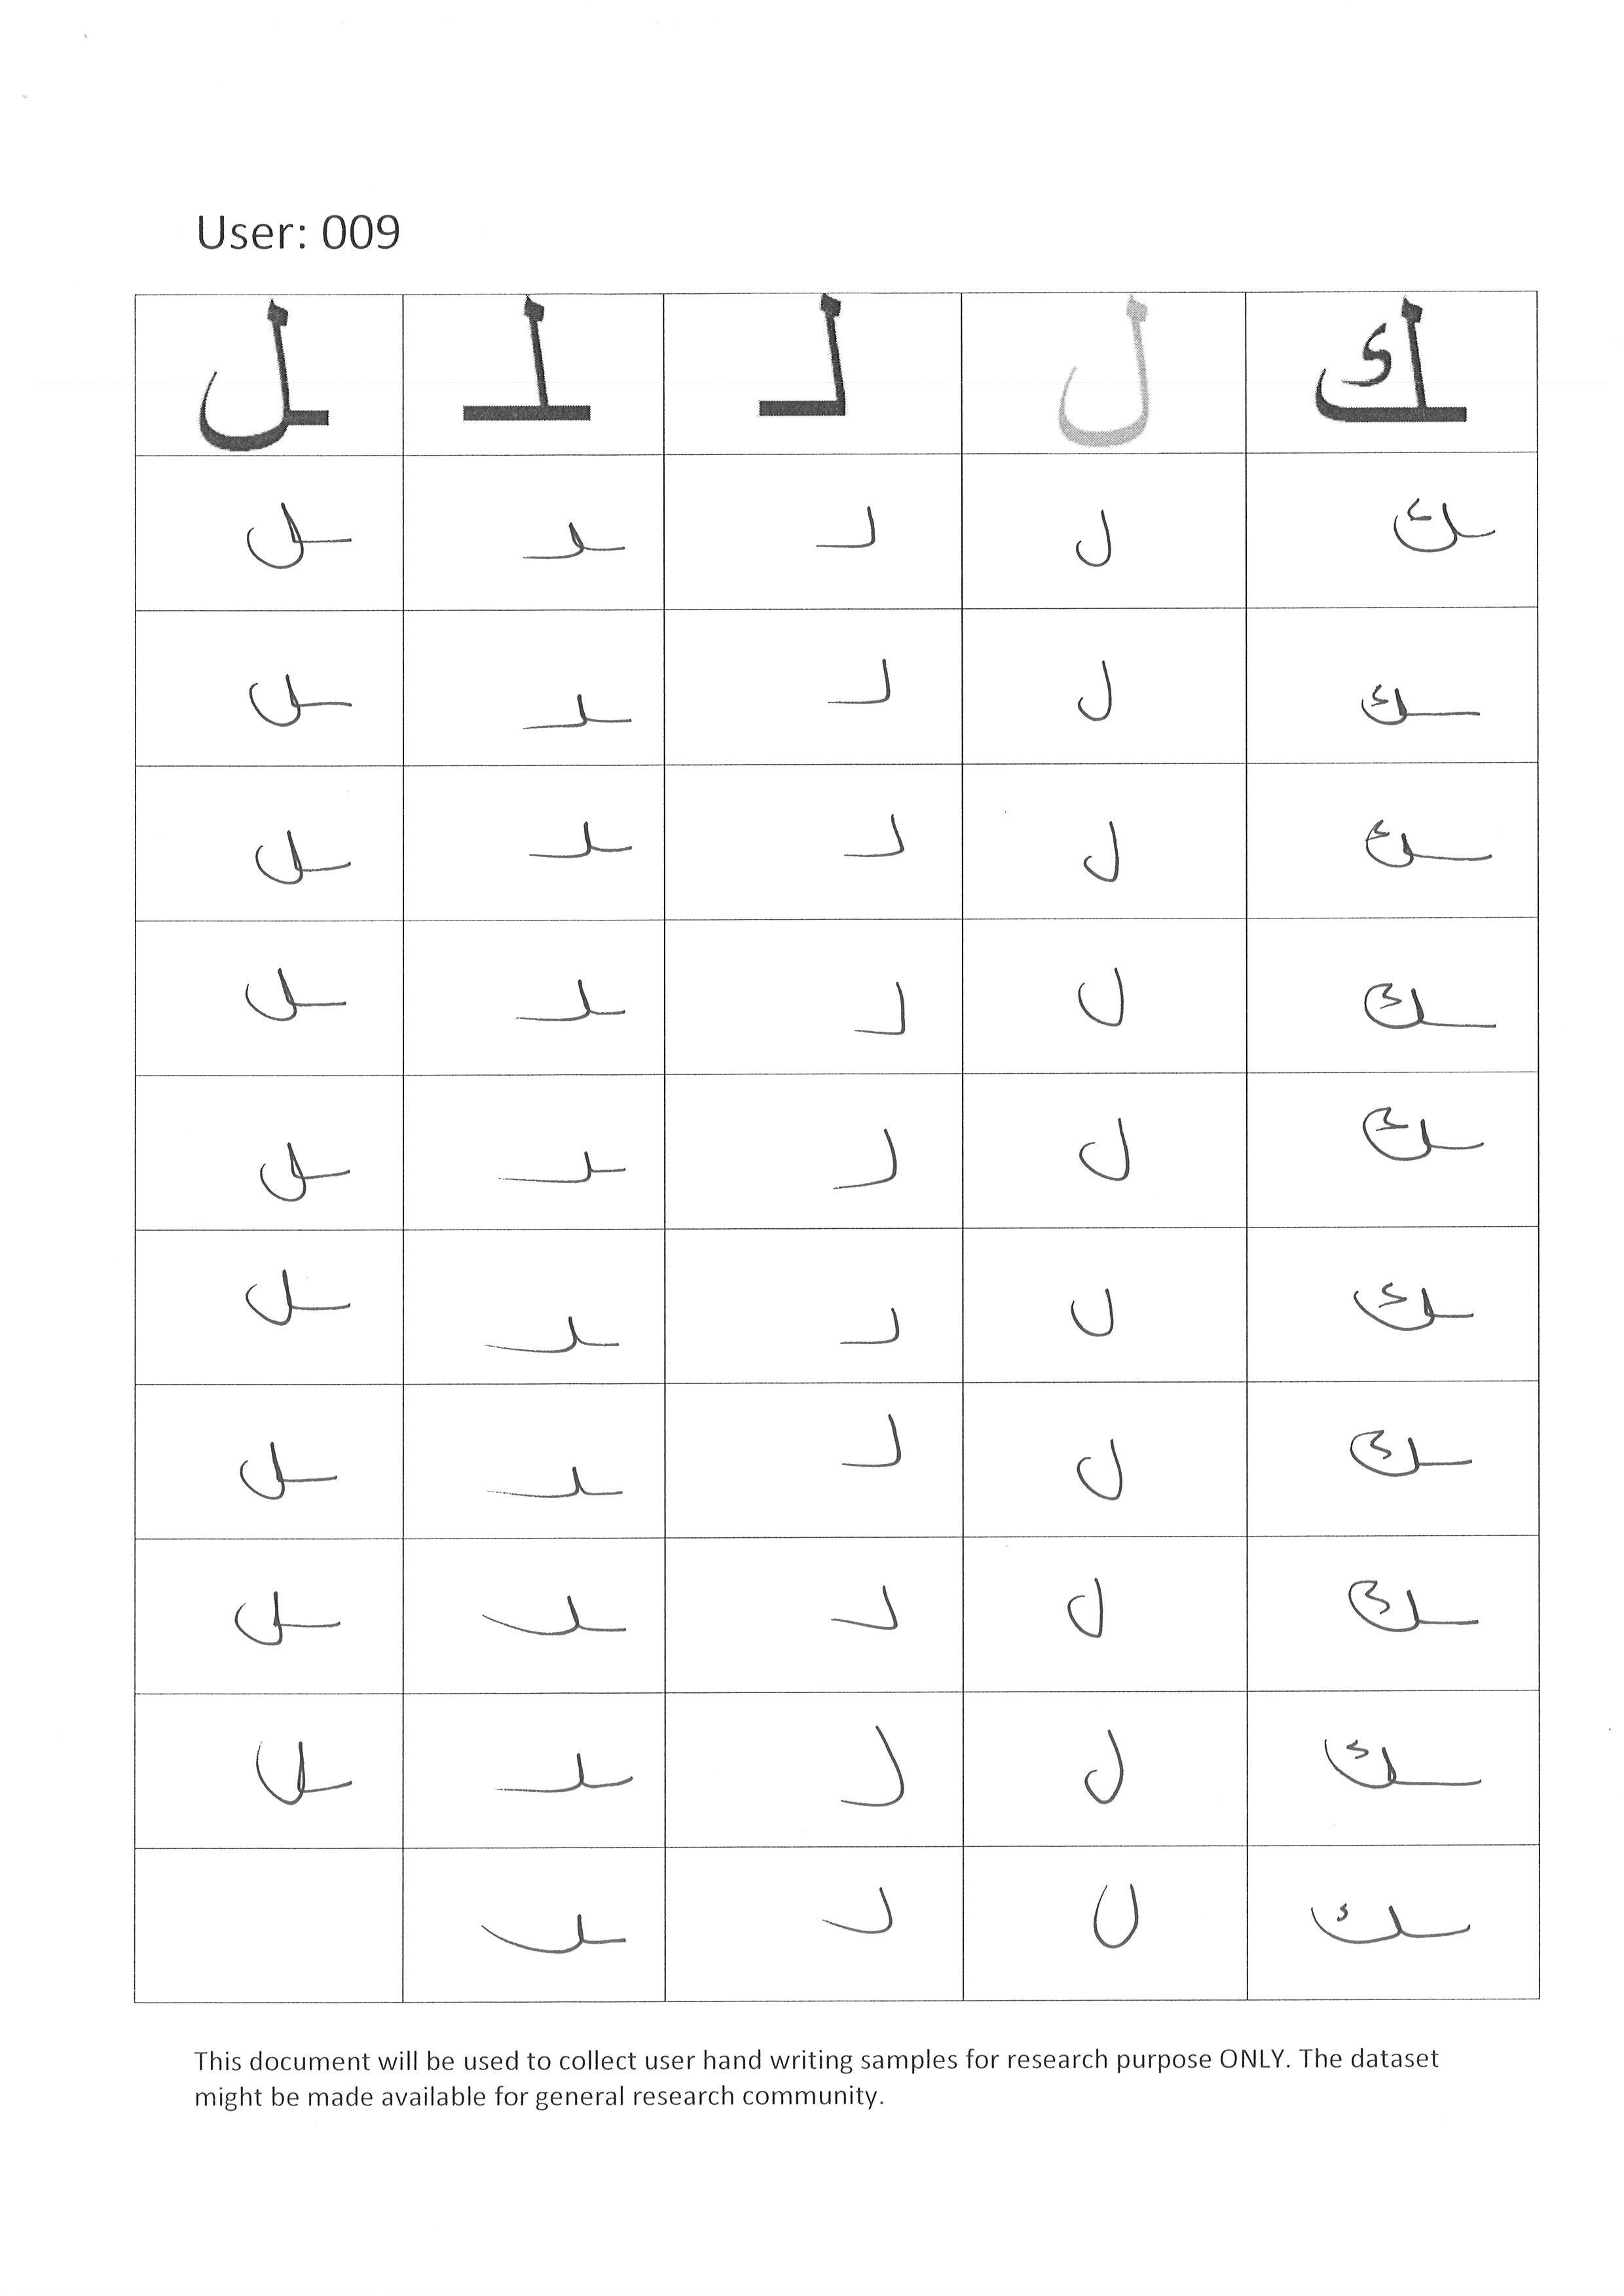 User: 009
ـك ل لـ ـلـ ـل
ـك ل لـ ـلـ ـل
ـك ل لـ ـلـ ـل
ـك ل لـ ـلـ ـل
ـك ل لـ ـلـ ـل
ـك ل لـ ـلـ ـل
ـك ل لـ ـلـ ـل
ـك ل لـ ـلـ ـل
ـك ل لـ ـلـ ـل
ـك ل لـ ـلـ ـل
ـك ل لـ ـلـ
This document will be used to collect user hand writing samples for research purpose ONLY. The dataset
might be made available for general research community.